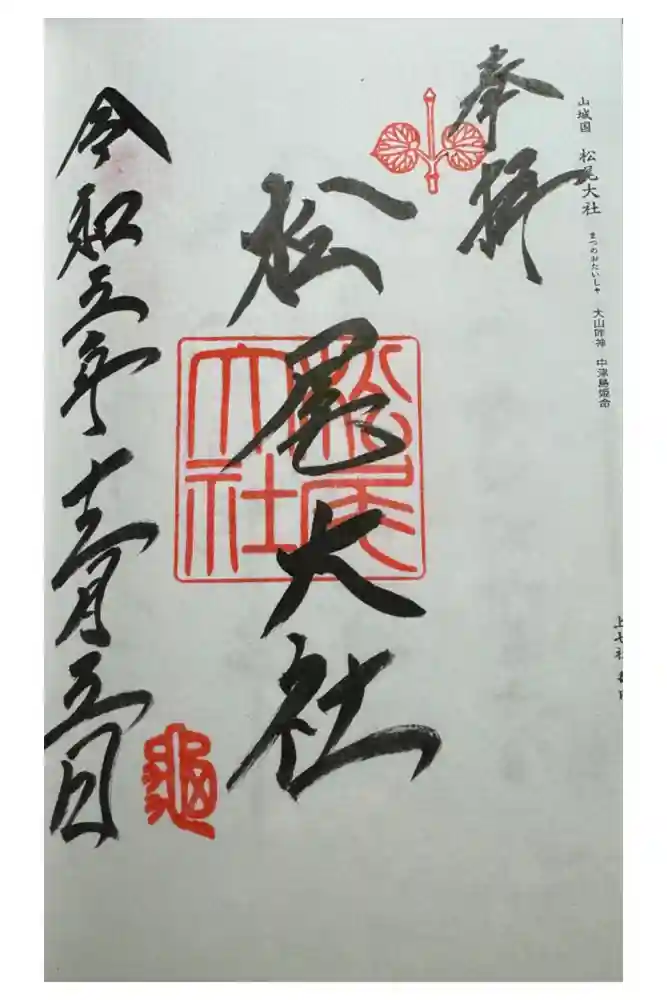 山城国 松尾大社 まつのおたいしゃ 大山咋神 中津島姫命
奉拝
松尾大社
松尾大社
令和五年十二月五日
亀